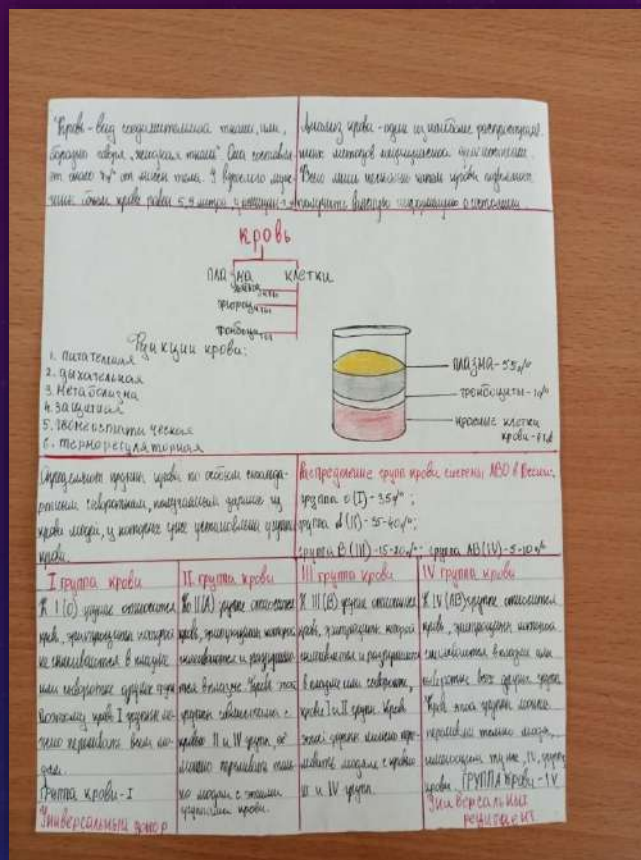 Кровь - вид соединительной ткани, или,
образно говоря, "жидкая ткань". Она составля-
ет около 7% от массы тела. У взрослого муж-
чины объем крови равен 5,5 литра, у женщин
Анализ крови - один из наиболее распростран.
ных методов медицинской диагностики.
Всего лишь несколько капель крови позволяют
получить важную информацию о состоянии
кровь
плазма клетки
тромбоциты
Функции крови:
1. питательная
2. дыхательная
3. метаболизма
4. защитная
5. гомеостатическая
6. терморегуляторная
плазма - 55%
тромбоциты - 1%
красные клетки
крови
Определяют группы крови по особым стандар-
тным сывороткам, получаемым заранее из
крови людей, у которых уже установлена группа
крови.
Распределение групп крови системы АВО в России:
группа о (I) - 35%;
группа (II) - 35-40%;
группа В (III) - 15-20%; группа АВ (IV) - 5-10%
I группа крови
К I (О) группе относится
кровь, эритроциты которой
не склеиваются в плазме
или сыворотке других групп
Поэтому кровь I группы мо-
жно переливать всем лю-
дям.
Группа крови - I
Универсальный донор
II группа крови
Ко II (А) группе относится
кровь, эритроциты которой
склеиваются и разруша-
ются в плазме. Кровь этой
группы совместима с
кровью II и IV групп, её
можно переливать толь-
ко людям с этими
группами крови.
III группа крови
К III (В) группе относится
кровь, эритроциты которой
склеиваются и разрушаются
в плазме или сыворотке,
крови I и II групп. Кровь
этой группы можно пере-
ливать людям с кровью
III и IV групп.
IV группа крови
К IV (АВ) группе относится
кровь, эритроциты которой
склеиваются в плазме или
сыворотке всех других групп
Кровь этой группы можно
переливать только людям,
имеющим ту же, IV, группу
крови. ГРУППА крови - IV
Универсальный
реципиент